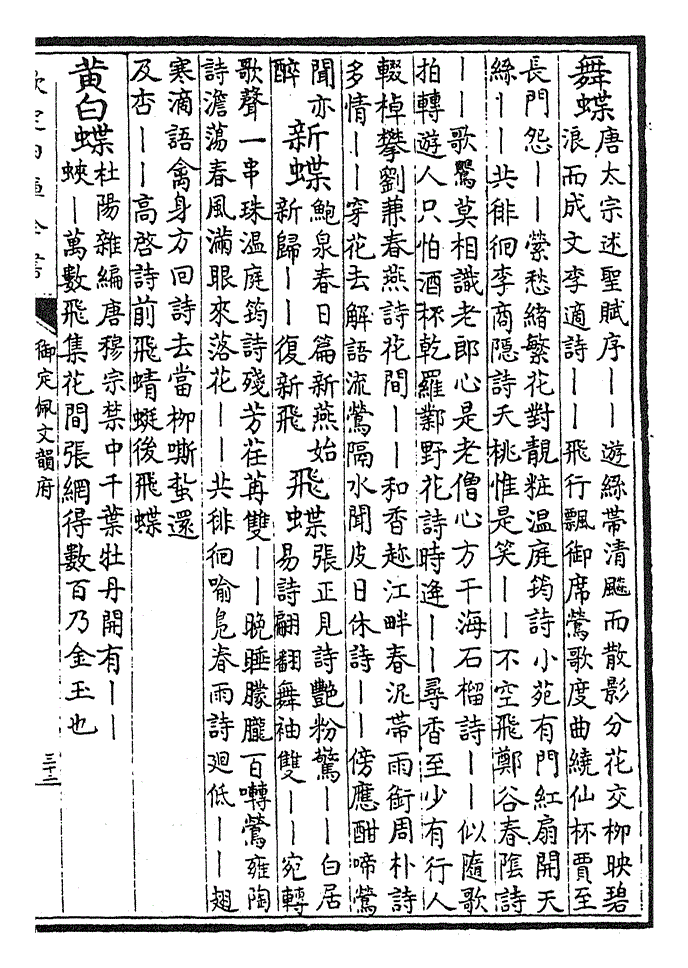 舞蝶
唐太宗述聖賦序丨丨遊絲帶清飇而散影分花交柳映碧
浪而成文李適詩丨丨飛行飄御席鶯歌度曲繞仙杯賈至
長門怨丨丨縈愁緒繁花對靚粧溫庭筠詩小苑有門紅扇開天
絲丨丨共徘徊李商隠詩夭桃惟是笑丨丨不空飛鄭谷春陰詩
丨丨歌鶯莫相識老郎心是老僧心方干海石榴詩丨丨似隨歌
拍轉遊人只怕酒杯乾羅鄴野花詩時逢丨丨尋香至少有行人
輟棹攀劉兼春燕詩花間丨丨和香趂江畔春泥帶雨銜周朴詩
多情丨丨穿花去解語流鶯隔水聞皮日休詩丨丨傍應酣啼鶯
聞亦
醉
新蝶
鮑泉春日篇新燕始
新歸丨丨復新飛
飛蝶
張正見詩艷粉驚丨丨白居
易詩翩翻舞袖雙丨丨宛轉
歌聲一串珠溫庭筠詩殘芳荏苒雙丨丨晚睡朦朧百囀鶯雍陶
詩澹蕩春風滿眼來落花丨丨共徘徊喻鳧春雨詩廻低丨丨翅
寒滴語禽身方回詩去當柳嘶蜇還
及杏丨丨高啓詩前飛蜻蜓後飛蝶
黄白蝶
杜陽雜編唐穆宗禁中千葉牡丹開有丨丨
蛺丨萬數飛集花間張網得數百乃金玉也
欽定四庫全書
御定佩文韻府
三十二